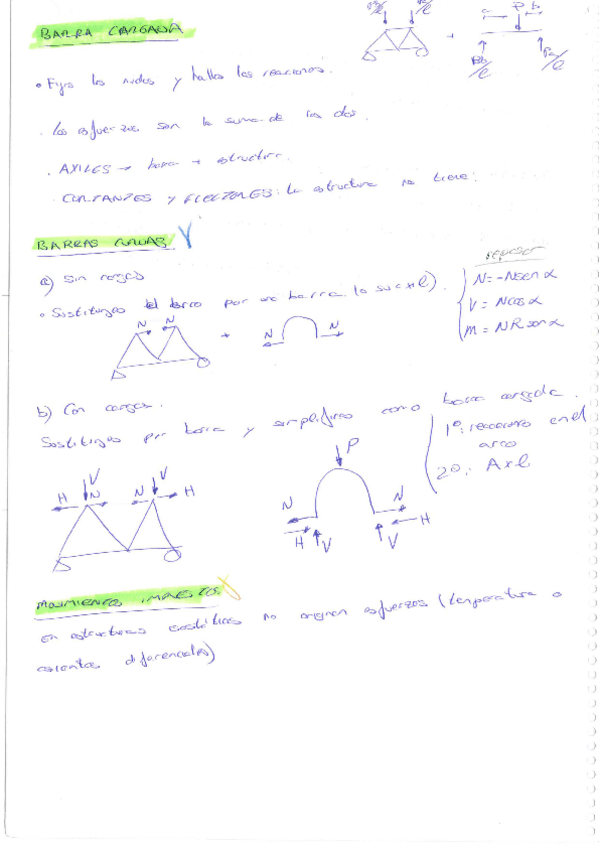 BARRA CARGADA
a P b
Pb/l
Pa/l
• Fijo los nudos y hallo las reacciones.
. los esfuerzos son la suma de los dos.
. AXILES → barra + estructura.
. CORTANTES Y FLECTORES: la estructura no tiene.
BARRAS CURVAS
repasar
a) Sin cargas
• Sustituyo el arco por una barra (o su axil).
N = -N sen α
V = N cos α
M = N R sen α
N N + N N
b) Con cargas.
Sustituyo por barra y simplifico como barra cargada.
1º: reacciono en el
arco
2º: Axil
P
H N V N V H
N H V N V H
MOVIMIENTOS IMPUESTOS
en estructuras isostáticas no originan esfuerzos (temperatura o
asientos diferenciales)